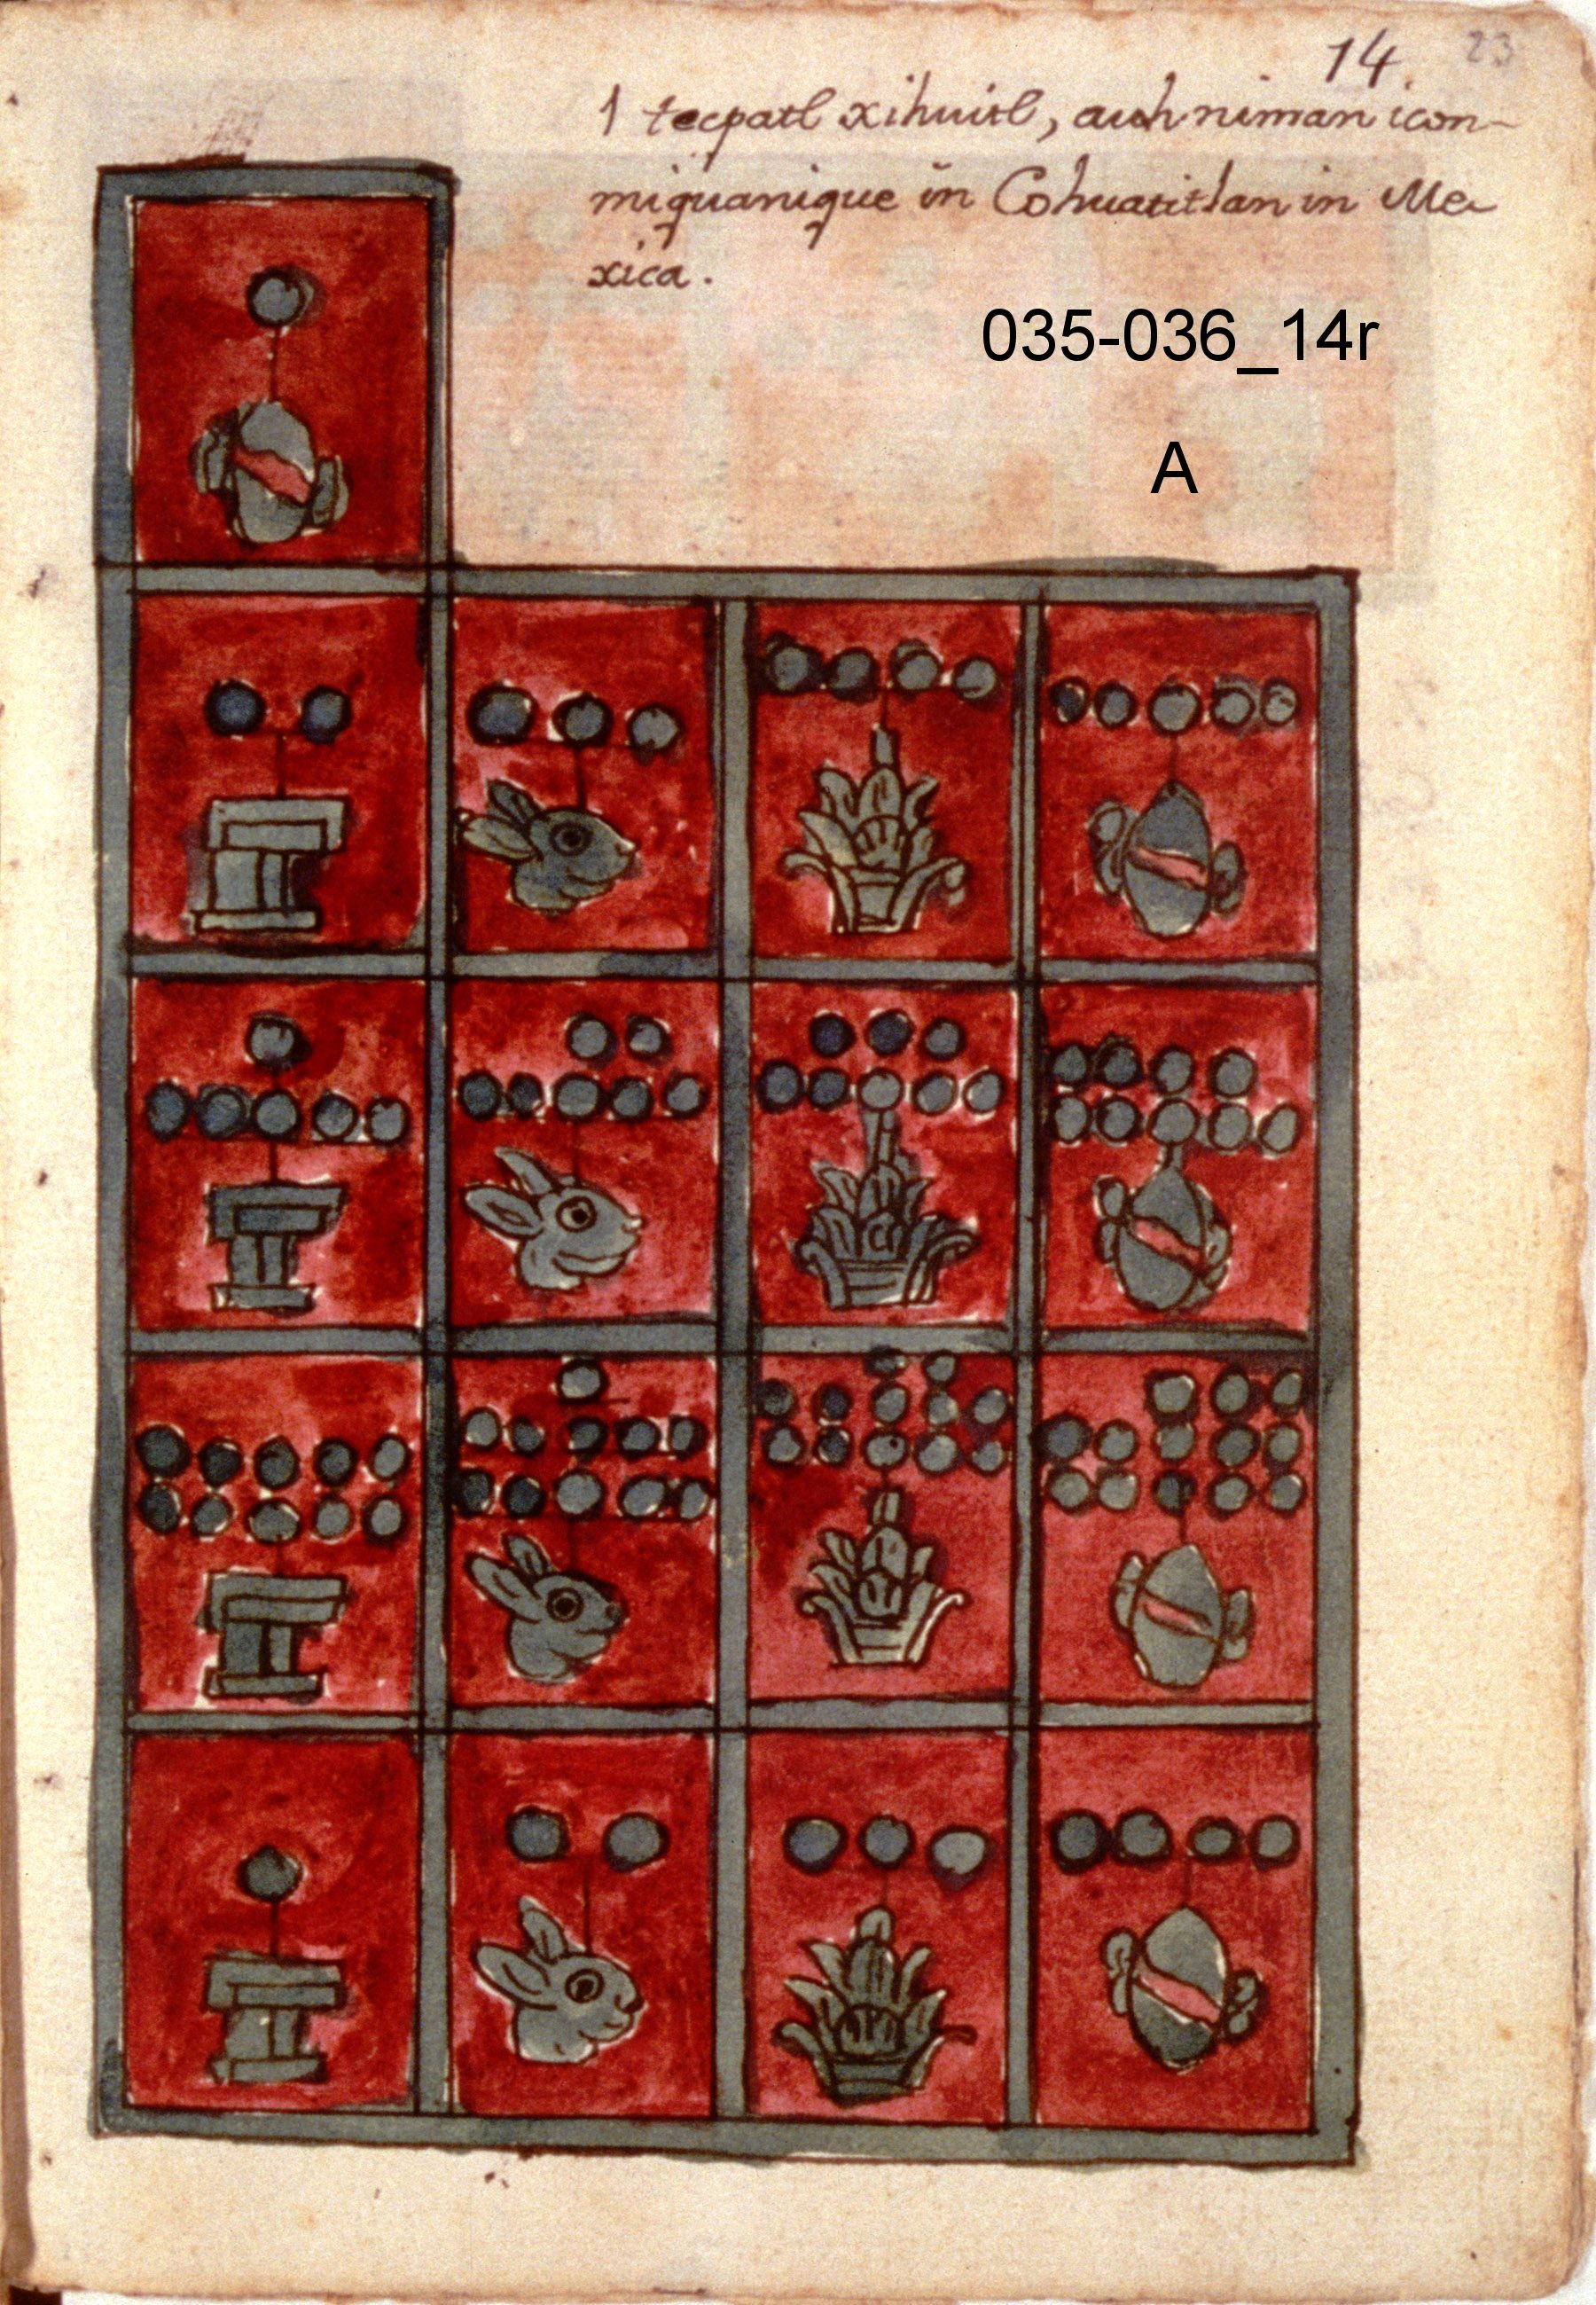 14 23
1 tecpatl xihuitl, auh niman icon-
miquanique in Cohuatitlan in Me-
xica.
035-036_14r
A